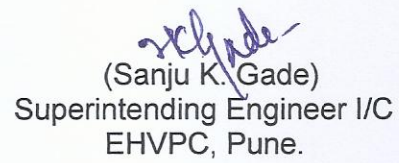 SKGade
(Sanju K. Gade)
Superintending Engineer I/C
EHVPC, Pune.